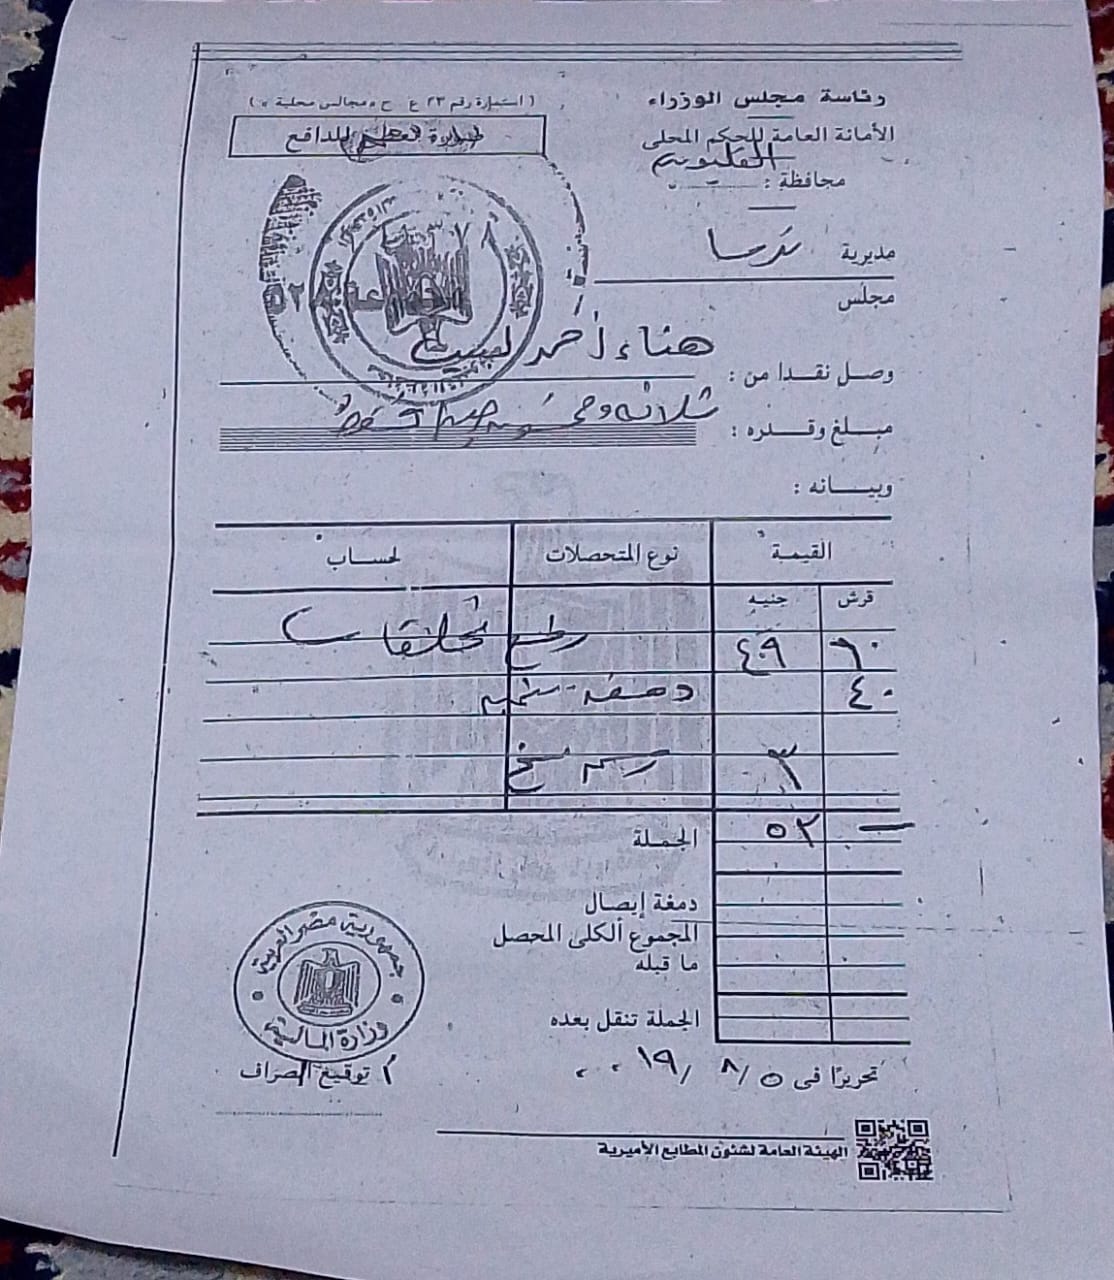 رئاسة مجلس الوزراء
الأمانة العامة للحكم المحلى
محافظة : القليوبية
( استمارة رقم ٢٣ ع ح « مجالس محلية » )
للدافع
مديرية
مجلس
وصل نقدا من : هناء أحمد
مبلغ وقدره : فقط
وبيانه :
القيمة نوع المتحصلات لحساب
قرش جنيه
٦٠ ٤٩ رفع مخلفات
٤٠ دمغة
٣ رسم نسخ
الجملة ٥٣ —
دمغة إيصال
المجموع الكلى المحصل
ما قبله
الجملة تنقل بعده
جمهورية مصر العربية
وزارة المالية
تحريرًا فى ٥/ ٨ /١٩
توقيع الصراف
الهيئة العامة لشئون المطابع الأميرية